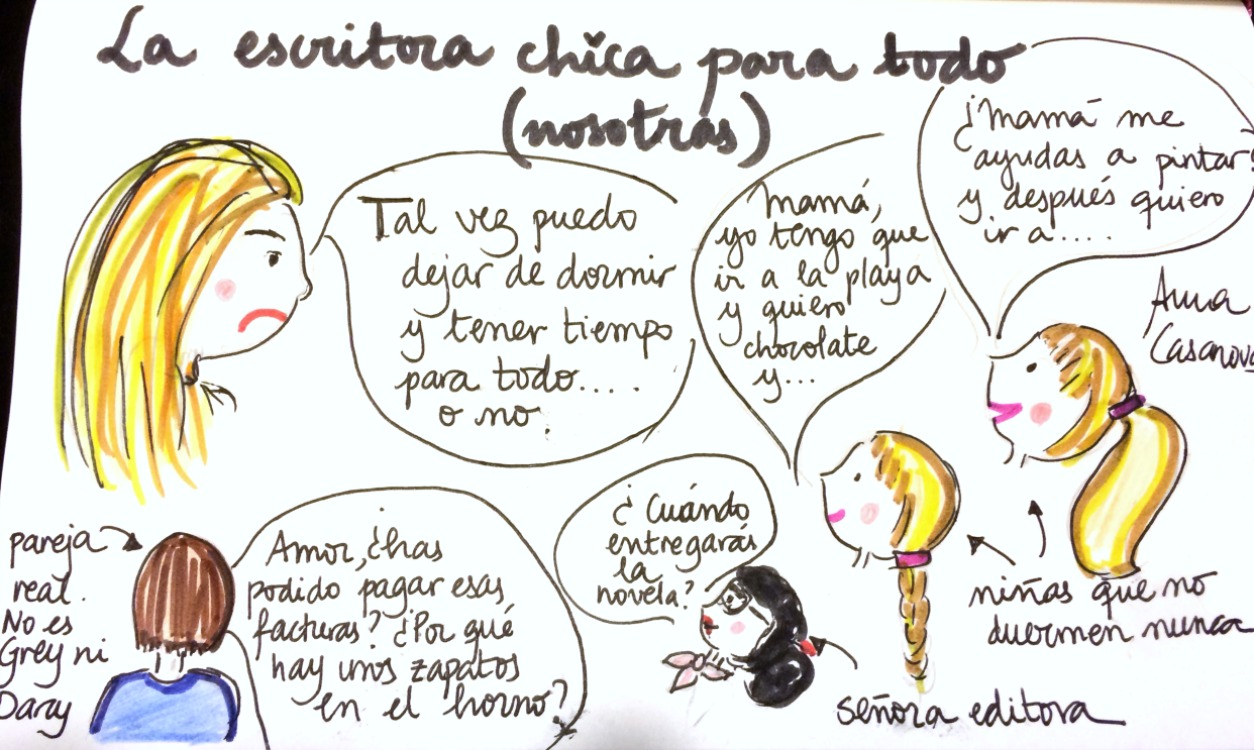 La escritora chica para todo
(nosotras)
Tal vez puedo
dejar de dormir
y tener tiempo
para todo....
o no.
Mamá,
yo tengo que
ir a la playa
y quiero
chocolate
y...
¿Mamá me
ayudas a pintar?
y después quiero
ir a.....
Anna
Casanovas
pareja
real.
No es
Grey ni
Darcy
Amor, ¿has
podido pagar esas
facturas? ¿Por qué
hay unos zapatos
en el horno?
¿Cuándo
entregarás
la
novela?
niñas que no
duermen nunca
señora editora